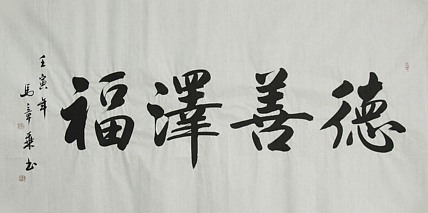 德善澤福
壬寅年
馬章乘书